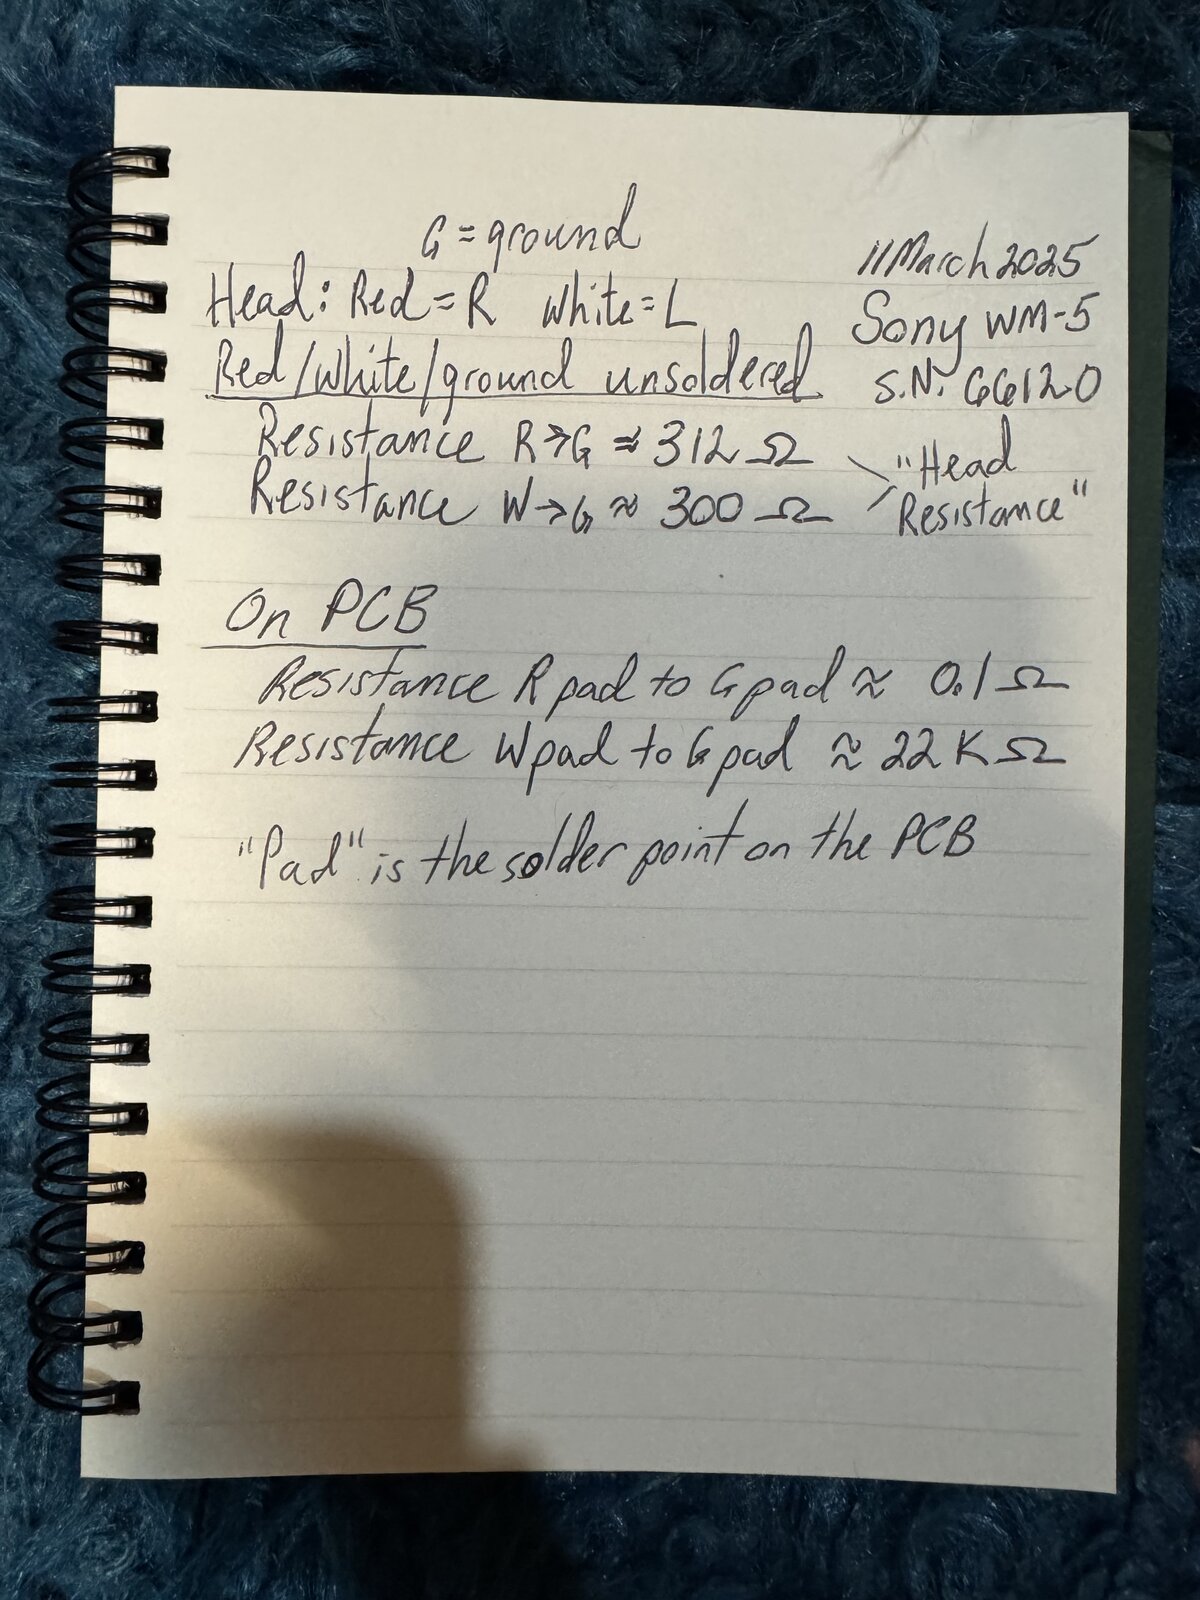 G = ground
11 March 2025
Head: Red = R White = L
Sony WM-5
Red/White/ground unsoldered
S.N. 66120
Resistance R→G ≈ 312 Ω
Resistance W→G ≈ 300 Ω
"Head
Resistance"
On PCB
Resistance R pad to G pad ≈ 0.1 Ω
Resistance W pad to G pad ≈ 22 K Ω
"Pad" is the solder point on the PCB